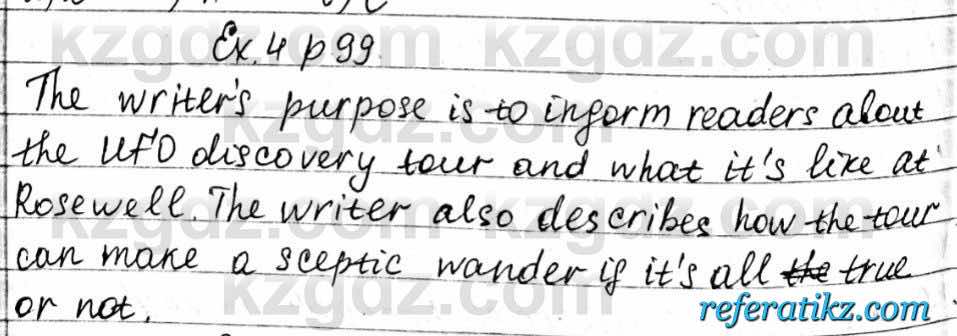 Ex. 4 p 99.
kzgdz.com
The writer's purpose is to inform readers about
the UFO discovery tour and what it's like at
Rosewell. The writer also describes how the tour
can make a sceptic wander if it's all the true
or not.
referatikz.com